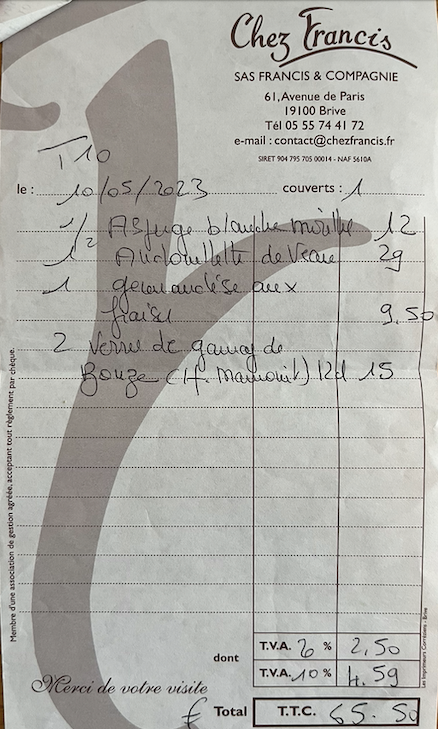 Chez Francis
SAS FRANCIS & COMPAGNIE
61, Avenue de Paris
19100 Brive
Tél 05 55 74 41 72
e-mail : contact@chezfrancis.fr
SIRET 904 795 705 00014 - NAF 5610A
T10
le : 10/05/2023 couverts : 1
1/2 Asperge blanche morille 12
1 Andouillette de Veau 29
1 gourmandise aux
fraises 9,50
2 Verre de gamay de
Bouze (H. ) 12cl 15
Membre d'une association de gestion agréée, acceptant tout règlement par chèque.
Les Imprimeurs Corréziens - Brive
dont
T.V.A. 20 % 2,50
T.V.A. 10 % 4.59
Merci de votre visite
€ Total T.T.C. 65.50